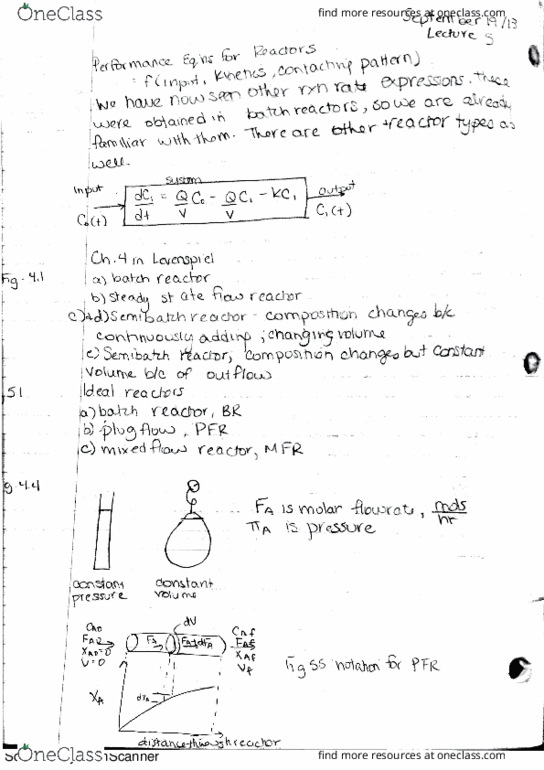 OneClass
find more resources at oneclass.com
September 19/13
Lecture 5
Performance Eq'ns for Reactors
= f(input, kinetics, contacting pattern)
We have now seen other rxn rate expressions. These
were obtained in batch reactors, so we are already
familiar with them. There are other reactor types as
well.
system
Input
output
C₀(t)
dC₁/dt = Q/V C₀ - Q/V C₁ - KC₁
C₁(t)
Ch. 4 in Levenspiel
Fig. 4.1
a) batch reactor
b) Steady state flow reactor
c)+d) Semibatch reactor - composition changes b/c
continuously adding; changing volume
e) Semibatch reactor, composition changes but constant
volume b/c of outflow
5.1
Ideal reactors
a) batch reactor, BR
b) plug flow, PFR
c) mixed flow reactor, MFR
g 4.4
F_A is molar flowrate, mols/hr
π_A is pressure
constant
pressure
constant
volume
dV
C_A0
F_A0
X_A0=0
V=0
F_A
F_A+dF_A
C_Af
F_Af
X_Af
V_f
Fig 5.5 notation for PFR
X_A
dX_A
distance through reactor
OneClass
Scanner
find more resources at oneclass.com